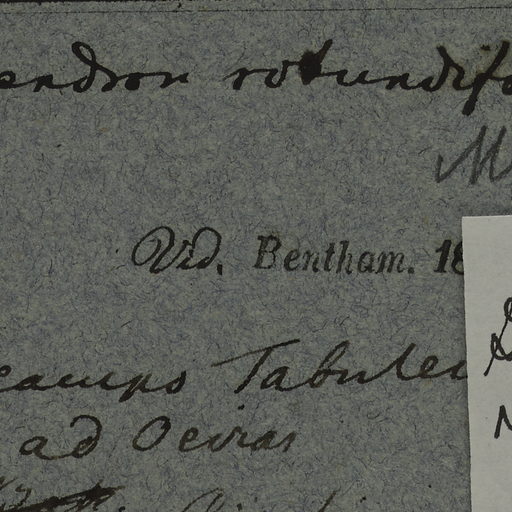 endron rotundifo
M
Vid. Bentham. 18
campo Tabulei
ad Oeiras